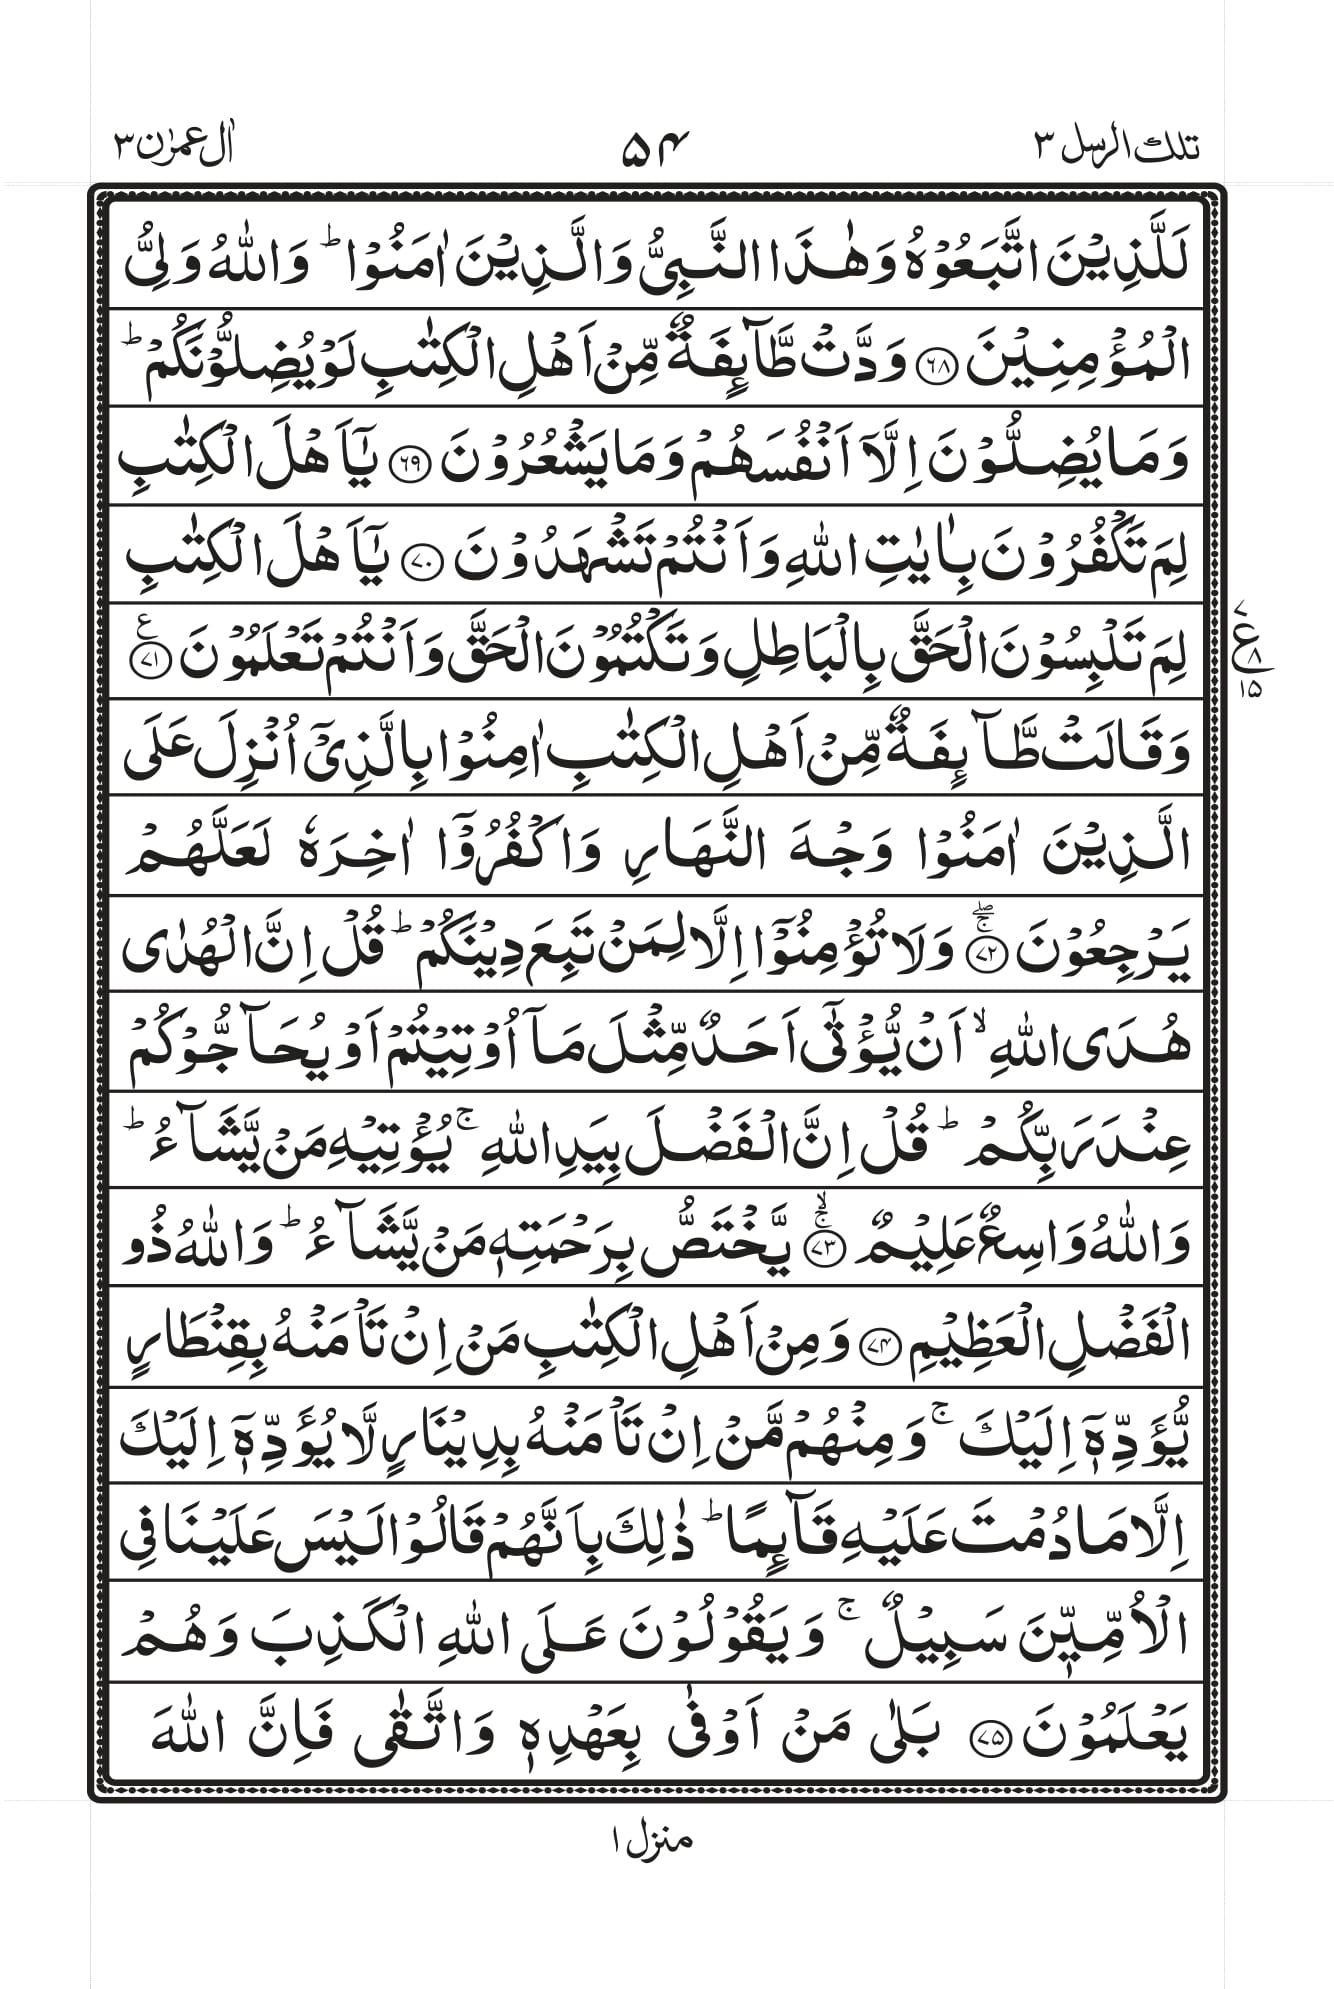 تلك الرسل ٣
٥٤
اٰل عمرٰن ٣
لَلَّذِيۡنَ اتَّبَعُوۡهُ وَهٰذَا النَّبِىُّ وَالَّذِيۡنَ اٰمَنُوۡا ؕ وَاللّٰهُ وَلِىُّ
الۡمُؤۡمِنِيۡنَ ﴿۶۸﴾ وَدَّتۡ طَّآٮِٕفَةٌ مِّنۡ اَهۡلِ الۡكِتٰبِ لَوۡ يُضِلُّوۡنَكُمۡ ؕ
وَمَا يُضِلُّوۡنَ اِلَّاۤ اَنۡفُسَهُمۡ وَمَا يَشۡعُرُوۡنَ ﴿۶۹﴾ يٰۤاَهۡلَ الۡكِتٰبِ
لِمَ تَكۡفُرُوۡنَ بِاٰيٰتِ اللّٰهِ وَاَنۡتُمۡ تَشۡهَدُوۡنَ ﴿۷۰﴾ يٰۤاَهۡلَ الۡكِتٰبِ
لِمَ تَلۡبِسُوۡنَ الۡحَقَّ بِالۡبَاطِلِ وَتَكۡتُمُوۡنَ الۡحَقَّ وَاَنۡتُمۡ تَعۡلَمُوۡنَ ﴿۷۱﴾ ع
۷
ع
۸
۱۵
وَقَالَتۡ طَّآٮِٕفَةٌ مِّنۡ اَهۡلِ الۡكِتٰبِ اٰمِنُوۡا بِالَّذِىۡۤ اُنۡزِلَ عَلَى
الَّذِيۡنَ اٰمَنُوۡا وَجۡهَ النَّهَارِ وَاكۡفُرُوۡۤا اٰخِرَهٗ لَعَلَّهُمۡ
يَرۡجِعُوۡنَ ﴿۷۲﴾ ۖۚ وَلَا تُؤۡمِنُوۡۤا اِلَّا لِمَنۡ تَبِعَ دِيۡنَكُمۡ ؕ قُلۡ اِنَّ الۡهُدٰى
هُدَى اللّٰهِ ۙ اَنۡ يُّؤۡتٰٓى اَحَدٌ مِّثۡلَ مَاۤ اُوۡتِيۡتُمۡ اَوۡ يُحَآجُّوۡكُمۡ
عِنۡدَ رَبِّكُمۡ ؕ قُلۡ اِنَّ الۡفَضۡلَ بِيَدِ اللّٰهِ ۚ يُؤۡتِيۡهِ مَنۡ يَّشَآءُ ؕ
وَاللّٰهُ وَاسِعٌ عَلِيۡمٌ ﴿۷۳﴾ ۚۙ يَّخۡتَصُّ بِرَحۡمَتِهٖ مَنۡ يَّشَآءُ ؕ وَاللّٰهُ ذُو
الۡفَضۡلِ الۡعَظِيۡمِ ﴿۷۴﴾ وَمِنۡ اَهۡلِ الۡكِتٰبِ مَنۡ اِنۡ تَاۡمَنۡهُ بِقِنۡطَارٍ
يُّؤَدِّهٖۤ اِلَيۡكَ ۚ وَمِنۡهُمۡ مَّنۡ اِنۡ تَاۡمَنۡهُ بِدِيۡنَارٍ لَّا يُؤَدِّهٖۤ اِلَيۡكَ
اِلَّا مَا دُمۡتَ عَلَيۡهِ قَآٮِٕمًا ؕ ذٰلِكَ بِاَنَّهُمۡ قَالُوۡا لَيۡسَ عَلَيۡنَا فِى
الۡاُمِّيّٖنَ سَبِيۡلٌ ۚ وَيَقُوۡلُوۡنَ عَلَى اللّٰهِ الۡكَذِبَ وَهُمۡ
يَعۡلَمُوۡنَ ﴿۷۵﴾ بَلٰى مَنۡ اَوۡفٰى بِعَهۡدِهٖ وَاتَّقٰى فَاِنَّ اللّٰهَ
منزل ١